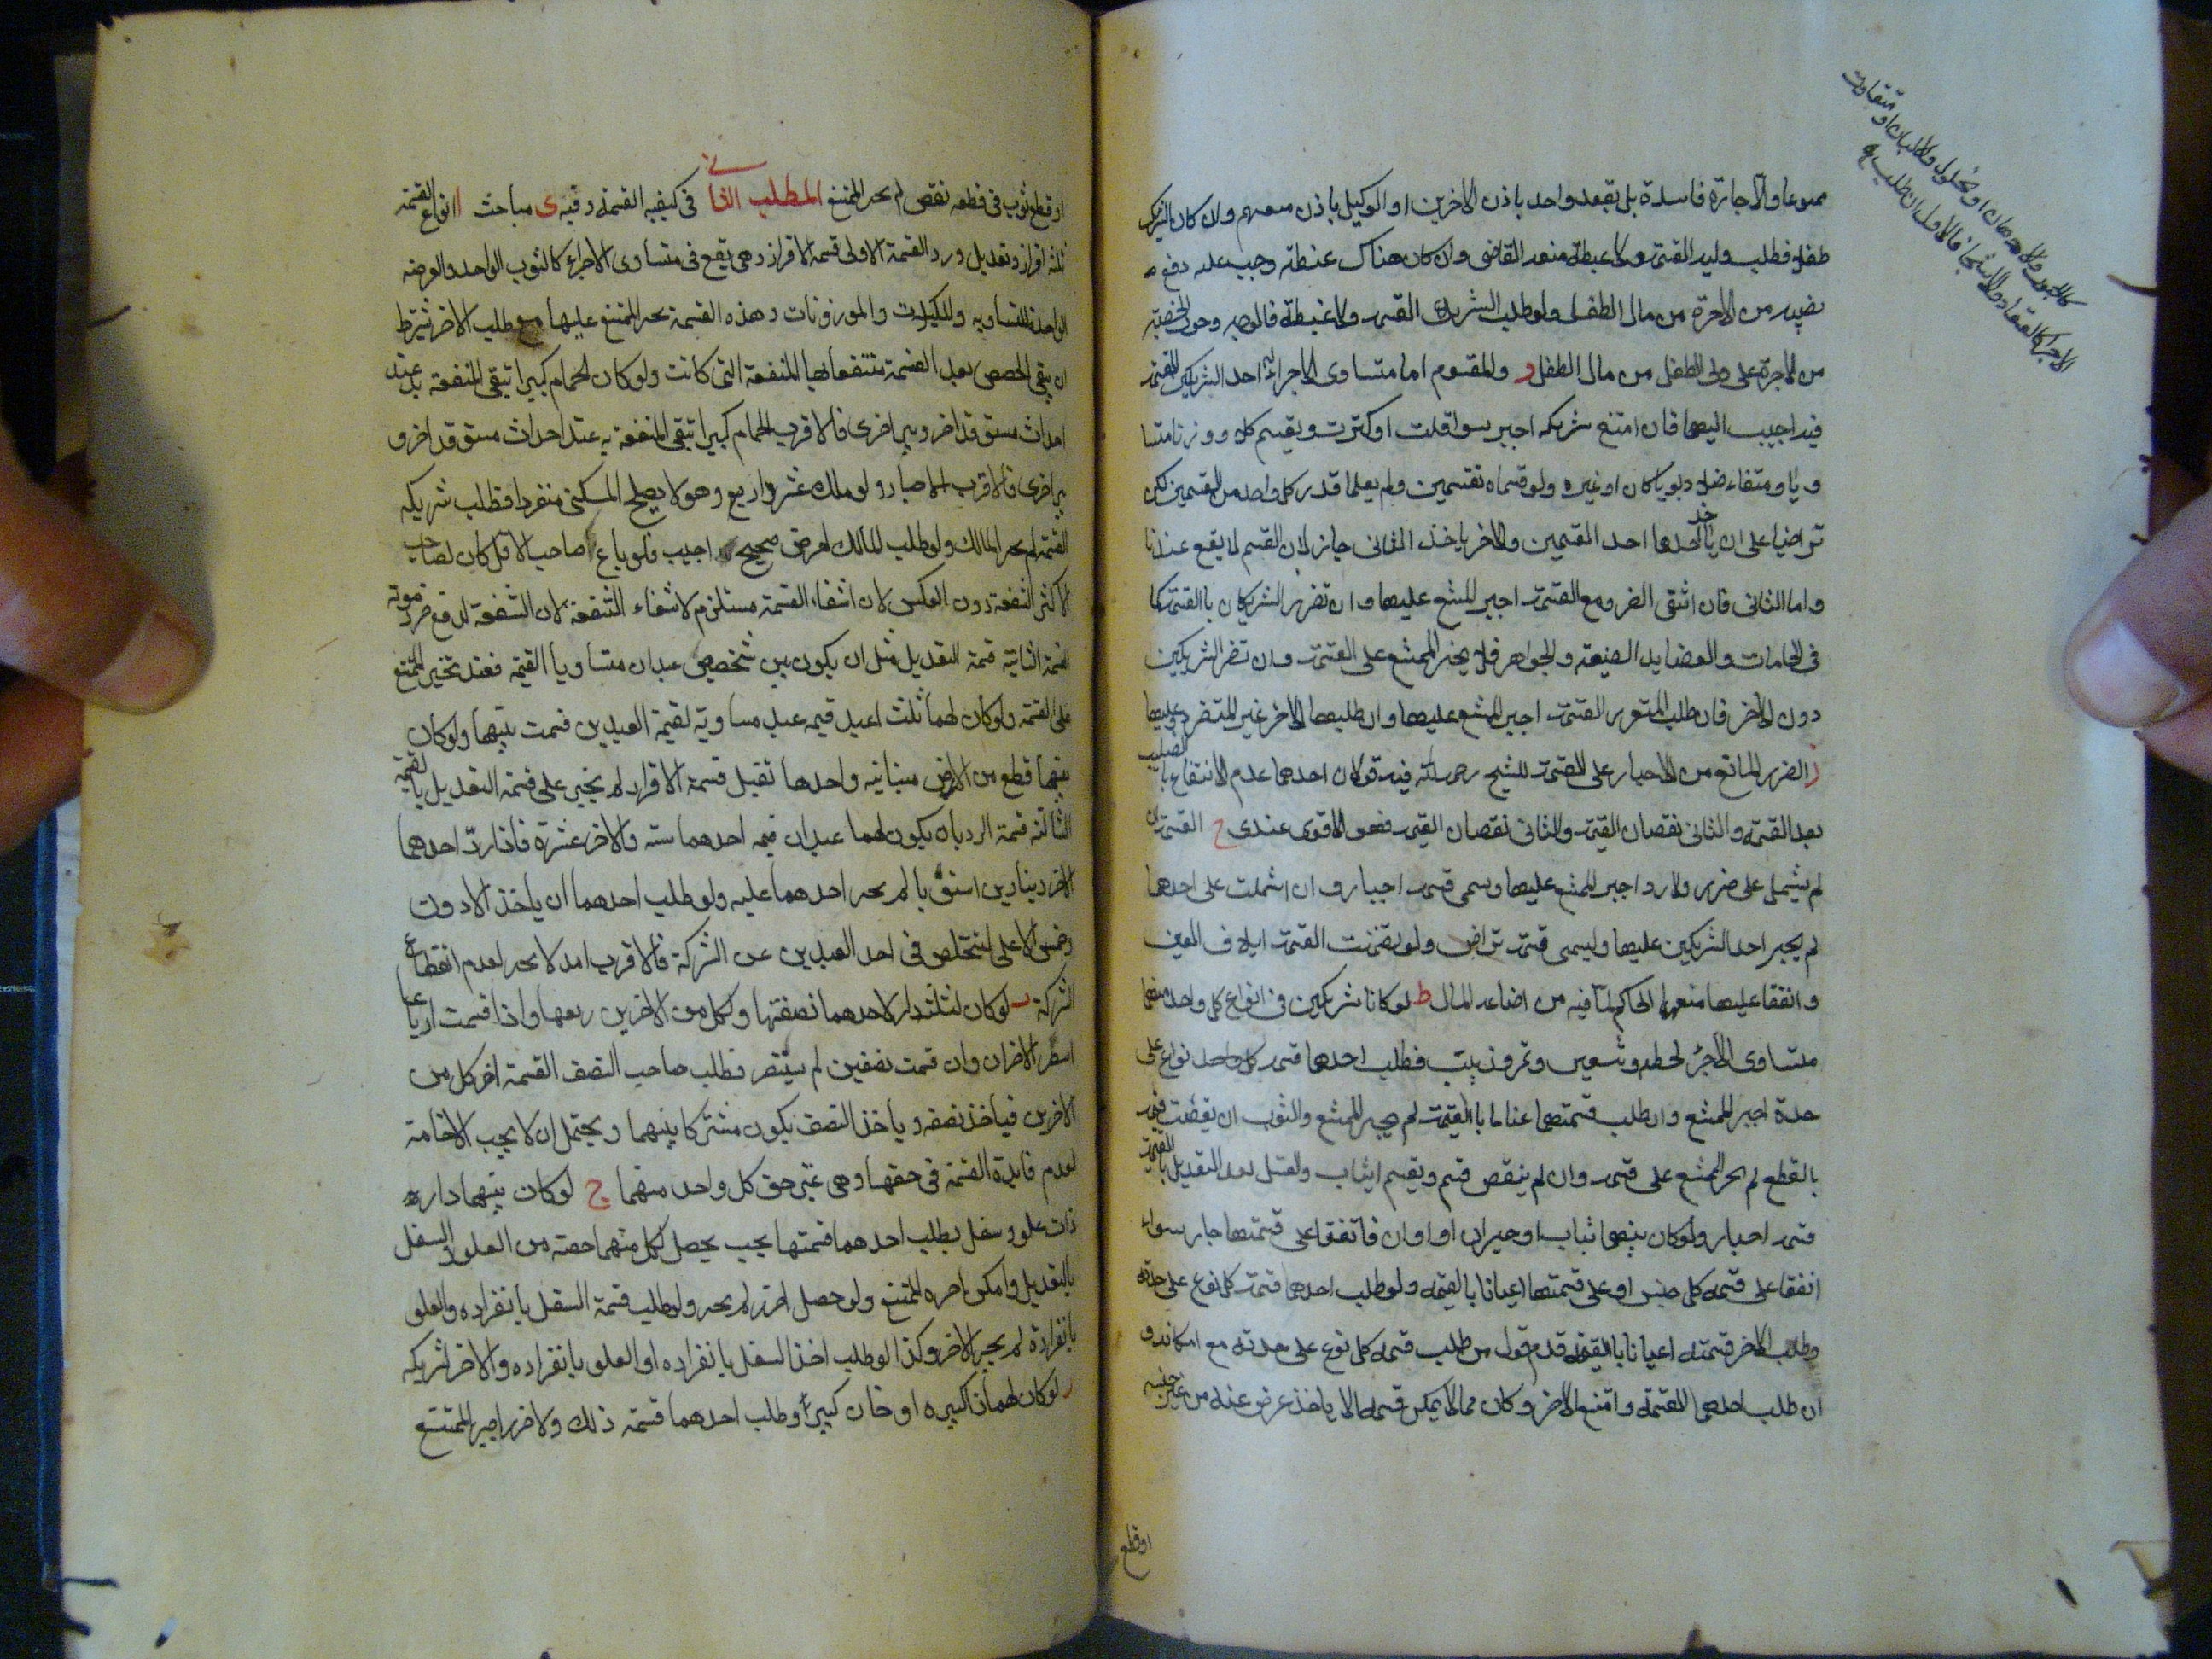 ممنوعا والاجارة فاسدة بل يقعد واحد باذن الاخرين او الوكيل باذن منهم ولو كان الشريك
طفلا فطلب وليه القسمة ولا غبطة منعه القاضي وان كان هناك غبطة وجب عليه دفع
نصيبه من الاجرة من مال الطفل ولو طلب الشريك القسمة ولا غبطة فالوجه وجوب الحصة
من الاجرة على ولى الطفل من مال الطفل و والمقسوم اما متساوى الاجزاء احد الشريكين القسمة
فيه اجيب اليها فان امتنع شريكه اجبر سوا قلت او كثرت ويقسم كلا ووزنا متسا
ويا ومتفاضلا ربويا كان او غيره ولو قسماه قسمين ولم يعلما قدر كل واحد من القسمين لكن
تراضيا على ان ياخذ احدهما احد القسمين والاخر ياخذ الثانى جاز لان القسم لا يقع عندنا
واما الثانى فان انتفى الضرر مع القسمة اجبر الممتنع عليها وان تضرر الشريكان بالقسمة كما
فى الحامات والعضايد الضيقة والجواهر فلا يجبر الممتنع على القسمة وان تضرر الشريكين
دون الاخر فان طلب المتضرر القسمة اجبر الممتنع عليها وان طلبها الاخر غير المتضرر
ز الضرر المانع من الاجبار على القسمة للشيخ رحمه الله فيه قولان احدهما عدم الانتفاع بالنصيب
بعد القسمة والثانى نقصان القيمة والثانى نقصان القيمة فهو الاقوى عندى ح القسمة ان
لم يشتمل على ضرر ولا رد اجبر الممتنع عليها وسمى قسمة اجبار وان اشتملت على احدهما
لم يجبر احد الشريكين عليها ويسمى قسمة تراض ولو تضمنت القسمة اتلاف العين
واتفقا عليها منعهما الحاكم لما فيه من اضاعة المال ط لو كانا شريكين فى انواع كل واحد منهما
متساوى الاجزاء لحنطة وشعير وتمر وزبيب فطلب احدهما قسمة كل واحد نواع على
حدة اجبر الممتنع وان طلب قسمتها اعيانا بالقيمة لم يجبر الممتنع والثوب ان نقصت قيمته
بالقطع لم يجبر الممتنع على قسمه وان لم ينقص قسم ويقسم الثياب والعبيد بعد التعديل بالقيمة
قسمة اجبار ولو كان بينهما ثياب او حيوان او اوان فاتفقا على قسمتها جاز سواء
اتفقا على قسمة كل جنس او على قسمتها اعيانا بالقيمة ولو طلب احدهما قسمة كل نوع على حدته
وطلب الاخر قسمته اعيانا بالقيمة قدم قول من طلب قسمة كل نوع على حدته مع امكانه و
ان طلب احدهما القسمة وامتنع الاخر وكان مما لا يمكن قسمه الا ياخذ عرض عنه من غير جنسه
كالحبوب والادهان او خلول والالبان او متفاوت
الاجزاء كالعقار والاشجار فالاول ان طلب
اوقطع
او قطع ثوب فى قطعه نقص لم يجبر الممتنع المطلب الثانى فى كيفية القسمة وفيه ى مباحث ا انواع القسمة
ثلثة افراز وتعديل ورد القسمة الاولى قسمة الافراز وهى يقع فى متساوى الاجزاء كالثوب الواحد والعرصة
الواحدة المتساويه والمكيلات والموزونات وهذه القسمة يجبر الممتنع عليها مع طلب الاخر بشرط
ان يبقى الحصص بعد القسمة منتفعا بها المنفعة التى كانت ولو كان الحمام كبيرا تبقى المنفعة بل عند
احداث مستوقد اخر وبير اخرى فالاقرب الحمام كبيرا تبقى المنفعة به عند احداث مستوقد اخر و
بير اخرى فالاقرب الاجبار ولو ملك عشر دار بع وهو لا يصلح المسكن منفردا فطلب شريكه
القسمة لم يجبر المالك ولو طلب المالك لغرض صحيح اجيب فلو باع صاحب الاقل كان لصاحب
الاكثر الشفعة دون العكس لان انتفاء القسمة مستلزم لانتفاء الشفعة لان الشفعة لدفع ضرر مؤنة
القسمة الثانية قسمة التعديل مثل ان يكون بين شخصين عبدان متساويا القيمة فعند تخير الممتنع
على القسمة ولو كان لهما ثلث اعبد قيمة عبد مساوية لقيمة العبدين قسمت بينهما ولو كان
بينهما قطع من الارض متبانية واحدها تقبل قسمة الافراز لم يجبر على قسمة التعديل بالقيمة
الثالثة قسمة الرد بان يكون لهما عبدان قيمة احدهما ستة والاخر عشرة فاذا رد احدهما
الاخر دينارين استويا لم يجبر احدهما عليه ولو طلب احدهما ان ياخذ الادون
وخمس الاعلى ليتخلص فى احد العبدين عن الشركة فالاقرب انه لا يجبر لعدم انقطاع
الشركة ب لو كان لثلثة دار لاحدهما نصفها ولكل من الاخرين ربعها واذا قسمت ارباعا
اسطر الاخران وان قسمت نصفين لم يستضر فطلب صاحب النصف القسمة اجبر كل من
الاخرين فياخذ نصفه وياخذ النصف يكون مشتركا بينهما ويحتمل ان لا يجب الاخامة
لعدم فايدة القسمة فى حقهما وهى غير حق كل واحد منهما ج لو كان بينهما دار
ذات علو وسفل يطلب احدهما قسمتها يجب يحصل لكل منهما حصته من العلو والسفل
بالتعديل وامكن اجبره الممتنع ولو حصل ضرر لم يجبر ولو طلب قسمة السفل بانفراده والعلو
بانفراده لم يجبر الاخر وكذا لو طلب اخذ السفل بانفراده او العلو بانفراده والاخر لشريكه
د لو كان لهما دار كبيره او خان كبيرا وطلب احدهما قسمة ذلك ولا ضرر اجبر الممتنع